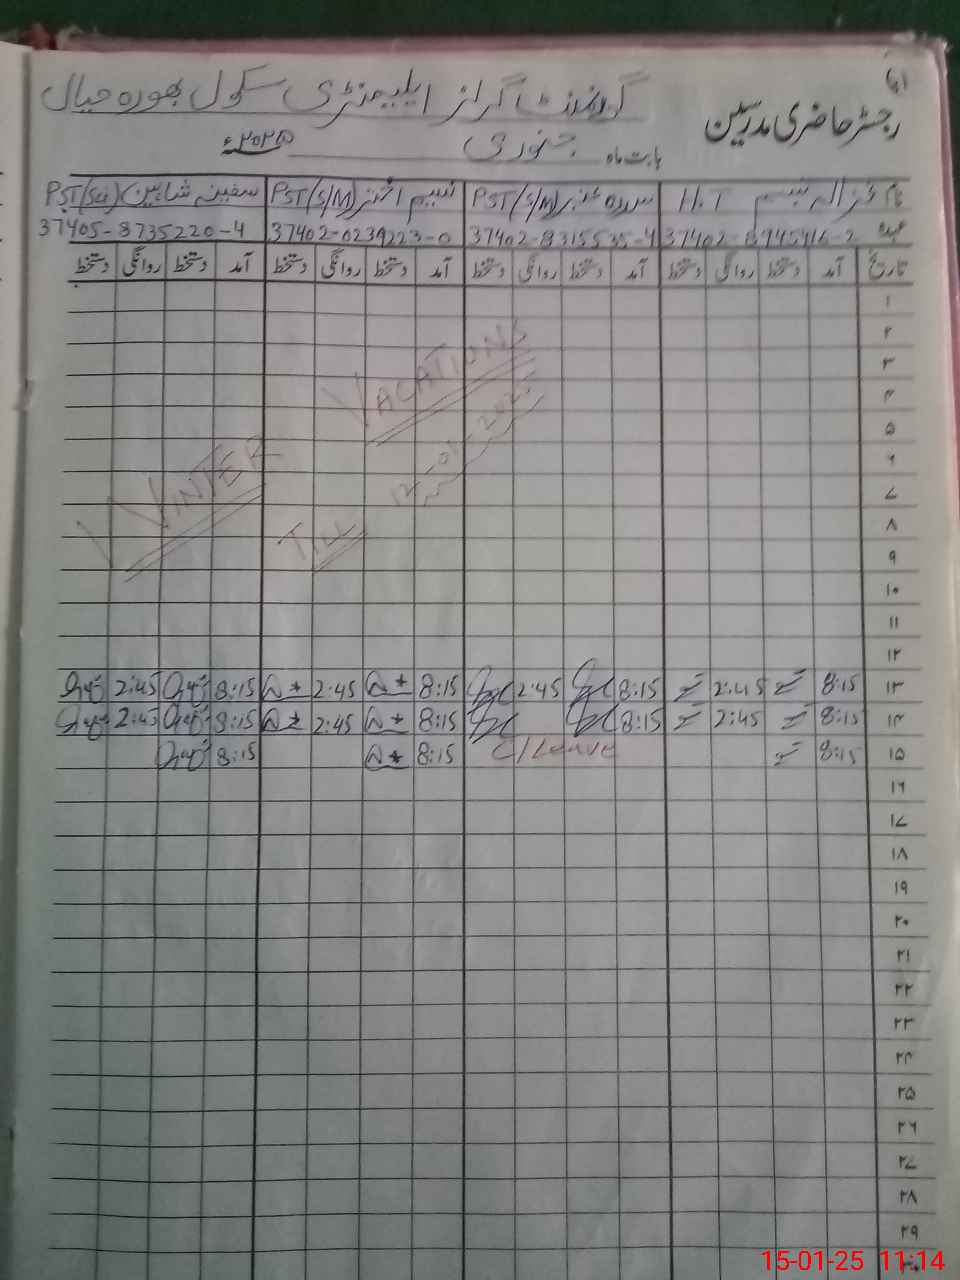 رجسٹر حاضری مدرسین
گورنمنٹ گرلز ایلیمنٹری سکول بھورہ حیال
بابت ماہ جنوری ۲۰۲۵ء
نام غزالہ تبسم H.T سدرہ عنبر PST(S/M) نسیم اختر PST(S/M) سفینہ شاہین PST(Sci)
عہدہ 37402-8315535-4 37402-0239223-0 37405-8735220-4
تاریخ آمد دستخط روانگی دستخط آمد دستخط روانگی دستخط آمد دستخط روانگی دستخط آمد دستخط روانگی دستخط
۱
۲
۳
۴
۵
۶
۷
۸
۹
۱۰
۱۱
۱۲
WINTER VACATIONS
TILL 12-01-2025
۱۳ 8:15 2:45 8:15 2:45 8:15 2:45 8:15 2:45
۱۴ 8:15 2:45 8:15 8:15 2:45 8:15 2:45
۱۵ 8:15 C/Leave 8:15 8:15
۱۶
۱۷
۱۸
۱۹
۲۰
۲۱
۲۲
۲۳
۲۴
۲۵
۲۶
۲۷
۲۸
۲۹
۳۰
15-01-25 11:14